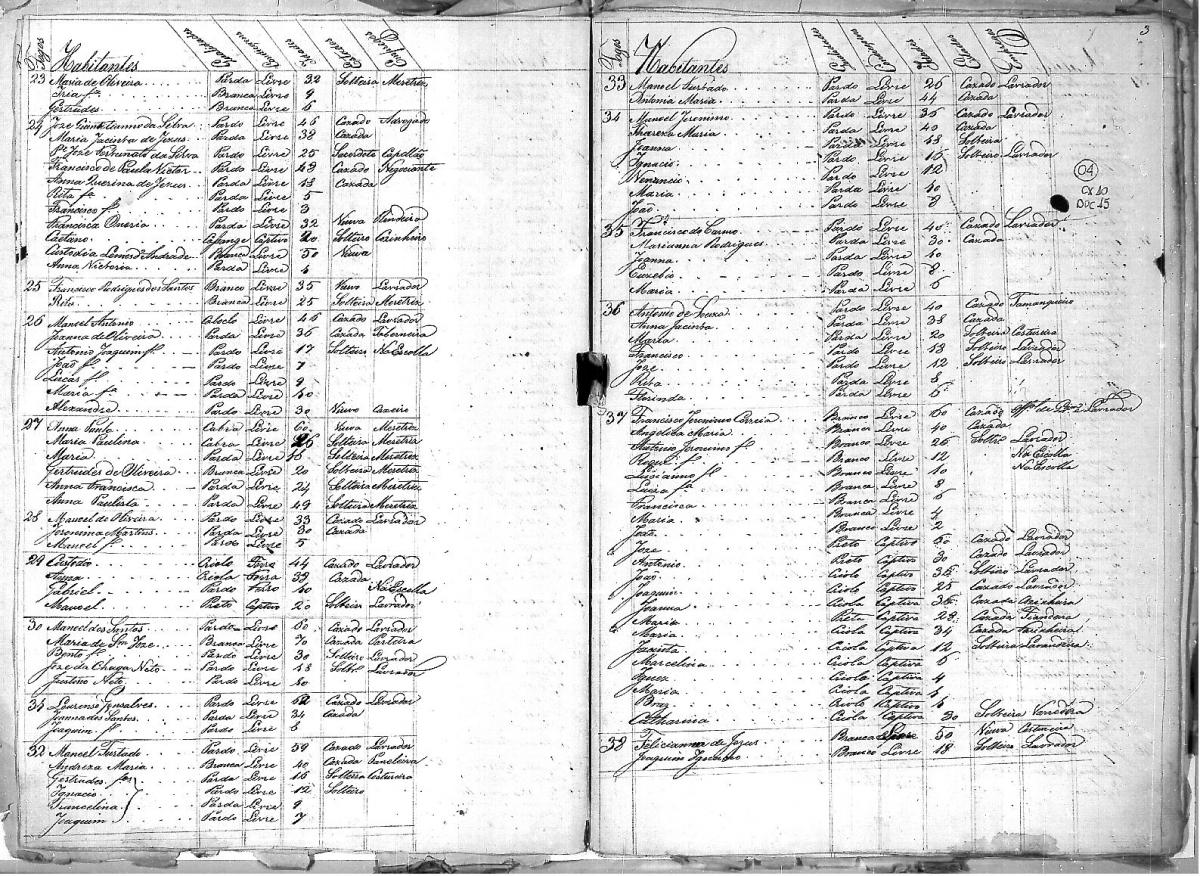 Habitantes
23 Maria de Oliveira Parda Livre 32 Solteira Meretriz
Iria fª Branca Livre 9
Gertrudes Branca Livre 6
24 Joze da Silva Pardo Livre 46 Cazado Advogado
Maria Jacinta de Jezus Parda Livre 38 Cazada
Pe Joze Fortunato da Silva Pardo Livre 25 Sacerdote Capellão
Francisco de Paula Victor Pardo Livre 48 Cazado Negociante
Anna Querina de Jezus Parda Livre 43 Cazada
Rita fª Parda Livre 5
Francisco fº Pardo Livre 3
Francisca Parda Livre 32 Viuva
Caetano Captivo 20 Solteiro Cozinheiro
Custodia Andrade Branca Livre 50 Viuva
Anna Victoria Parda Livre
25 Francisco Rodrigues dos Santos Branco Livre 35 Viuvo Lavrador
Rita Branca Livre 25 Solteira Meretriz
26 Manoel Antonio Livre 46 Cazado Lavrador
Joanna de Oliveira Parda Livre 36 Cazada Taberneira
Antonio Joaquim fº Pardo Livre 17 Solteiro Na Escolla
João fº Pardo Livre 7
Lucas fº Pardo Livre 9
Maria fª Parda Livre 10
Alexandre Pardo Livre 30 Viuvo Caxeiro
27 Anna Cabra Livre 60 Viuva Meretriz
Maria Paulina Cabra Livre 26 Solteira Meretriz
Maria Parda Livre 16 Solteira Meretriz
Gertrudes de Oliveira Branca Livre 20 Solteira Meretriz
Anna Francisca Parda Livre 24 Solteira Meretriz
Anna Paulista Parda Livre 49 Solteira Meretriz
28 Manoel de Oliveira Pardo Livre 33 Cazado Lavrador
Jeronima Martins Parda Livre 30 Cazada
Manoel fº Pardo Livre 5
29 Custodio Criolo Forro 44 Cazado Lavrador
Anna Criola Forra 39 Cazada
Gabriel Pardo Forro 10 Na Escolla
Manoel Preto Captivo 20 Solteiro Lavrador
30 Manoel dos Santos Pardo Livre 60 Cazado Lavrador
Maria de Sm Joze Branca Livre 70 Cazada Parteira
Bento fº Pardo Livre 30 Solteiro Lavrador
Joze da Chaga Neto Pardo Livre 18 Soltrº Lavrador
Justino Neto Pardo Livre 10
31 Lourenso Gonsalves Pardo Livre 62 Cazado Lavrador
Joanna dos Santos Parda Livre 34 Cazada
Joaquim fº Pardo Livre 6
32 Manoel Furtado Pardo Livre 59 Cazado Lavrador
Andreza Maria Branca Livre 40 Cazada Paneleira
Gertrudes fª Parda Livre 16 Solteira Costureira
Ignacio Pardo Livre 12 Solteiro
Francelina Parda Livre 9
Joaquim Pardo Livre 7
3
Habitantes
33 Manoel Furtado Pardo Livre 26 Cazado Lavrador
Antonia Maria Parda Livre 44 Cazada
34 Manoel Jeronimo Pardo Livre 36 Cazado Lavrador
Thereza Maria Parda Livre 40 Cazada
Joanna Parda Livre 18 Solteira
Ignacio Pardo Livre 16 Solteiro Lavrador
Venancio Pardo Livre 12
Maria Parda Livre 10
João Pardo Livre 9
04
CX 10
DOC 15
35 Francisco do Carmo Pardo Livre 40 Cazado Lavrador
Marianna Rodrigues Parda Livre 30 Cazada
Joanna Parda Livre 10
Euzebio Pardo Livre 8
Maria Parda Livre 6
36 Antonio de Souza Pardo Livre 40 Cazado Tamanqueiro
Anna Jacinta Parda Livre 38 Cazada
Marta Parda Livre 20 Solteira Costureira
Francisco Pardo Livre 13 Solteiro Lavrador
Joze Pardo Livre 12 Solteiro Lavrador
Rita Parda Livre 8
Florinda Parda Livre 6
37 Francisco Jeronimo Correia Branco Livre 60 Cazado Lavrador
Angelica Maria Branca Livre 40 Cazada
Antonio Jeronimo fº Branco Livre 26 Soltrº Lavrador
fº Branco Livre 12 Na Escolla
Luciano fº Branco Livre 10 Na Escolla
Luiza fª Branca Livre 8
Francisca Branca Livre 6
Maria Branca Livre 4
João Branco Livre 2
Joze Preto Captivo 50 Cazado Lavrador
Antonio Preto Captivo 30 Cazado Lavrador
João Criolo Captivo 36 Solteiro Lavrador
Joaquim Criolo Captivo 25 Cazado Lavrador
Joanna Criola Captiva 36 Cazada Cozinheira
Maria Preta Captiva 28 Cazada Fiandeira
Maria Criola Captiva 34 Cazada Farinheira
Jacinta Criola Captiva 12 Solteira Lavandeira
Marcelina Criola Captiva 6
Ignez Criola Captiva 4
Maria Criola Captiva 6
Braz Criolo Captivo 6
Catharina Criola Captiva 30 Solteira Vendedora
38 Felicianna de Jezus Branca Livre 50 Viuva
Joaquim Ignacio Branco Livre 18 Solteiro Lavrador